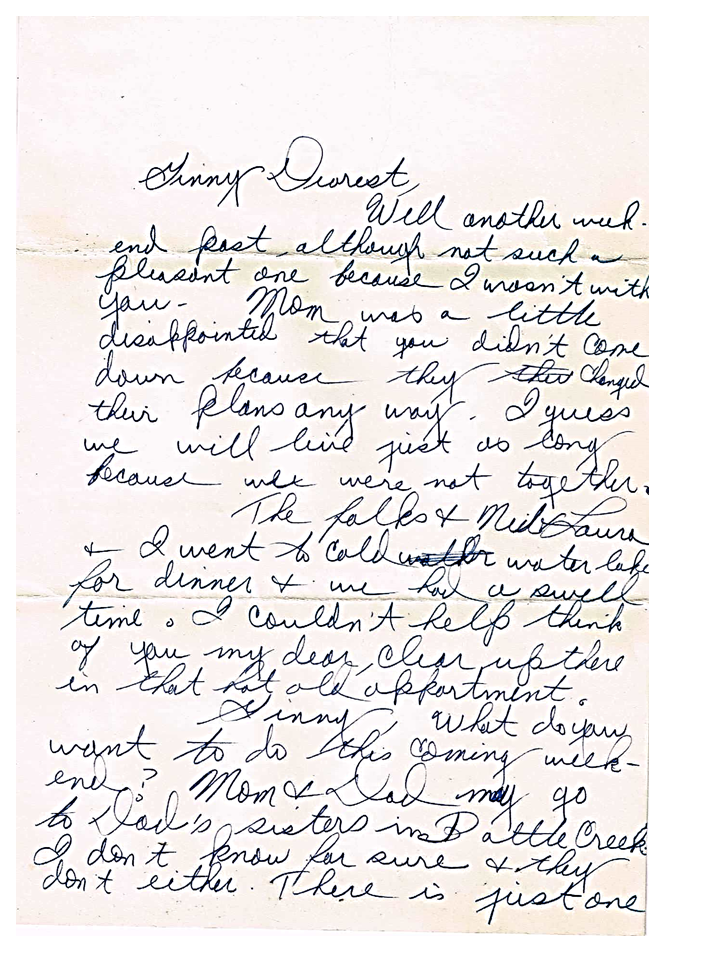 Ginny Dearest,
Well another week-
end past although not such a
pleasant one because I wasn't with
you - Mom was a little
disappointed that you didn't come
down because they Changed
their plans any way. I guess
we will live just as long
because we were not together.
The folks & Neil & Laura
& I went to cold water lake
for dinner & we had a swell
time. I couldn't help think
of you my dear, clear up there
in that hot old appartment.
Ginny, What do you
want to do this coming week-
end? Mom & Dad may go
to Dad's sisters in Battle Creek
I don't know for sure & they
don't either. There is just one